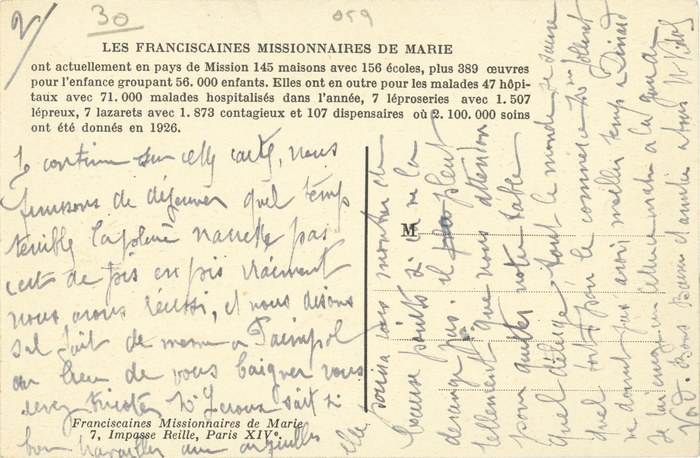 2/
30
059
LES FRANCISCAINES MISSIONNAIRES DE MARIE
ont actuellement en pays de Mission 145 maisons avec 156 écoles, plus 389 œuvres
pour l'enfance groupant 56.000 enfants. Elles ont en outre pour les malades 47 hôpi-
taux avec 71.000 malades hospitalisés dans l'année, 7 léproseries avec 1.507
lépreux, 7 lazarets avec 1.873 contagieux et 107 dispensaires où 2.100.000 soins
ont été donnés en 1926.
Je continue sur cette carte, nous
finissons de déjeuner quel temps
terrible la pluie n'arrête pas
c'est de pis en pis vraiment
nous avons réussi, et nous disons
s'il fait de meme a Paimpol
au lieu de vous baigner vous
devez tricoter Mr sait si
bien travailler aux aiguilles elle
Franciscaines Missionnaires de Marie
7, Impasse Reille, Paris XIVe.
M
pourra vous montrer de
beaux points si ca ne la
derange pas. il pleut
tellement que nous attendons
pour quitter notre table
Quel déluge tout le monde se sauve
quel tort pour le commerce Mme
ne doivent pas avoir meilleur temps a Dinard
Je
V. D. Bons Baisers et amities a tous